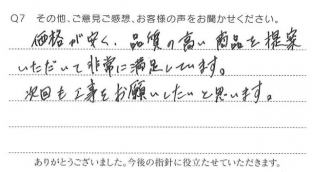 Q7 その他、ご意見ご感想、お客様の声をお聞かせください。
価格が安く、品質の高い商品を提案
いただいて非常に満足しています。
次回も工事をお願いしたいと思います。
ありがとうございました。今後の指針に役立たせていただきます。